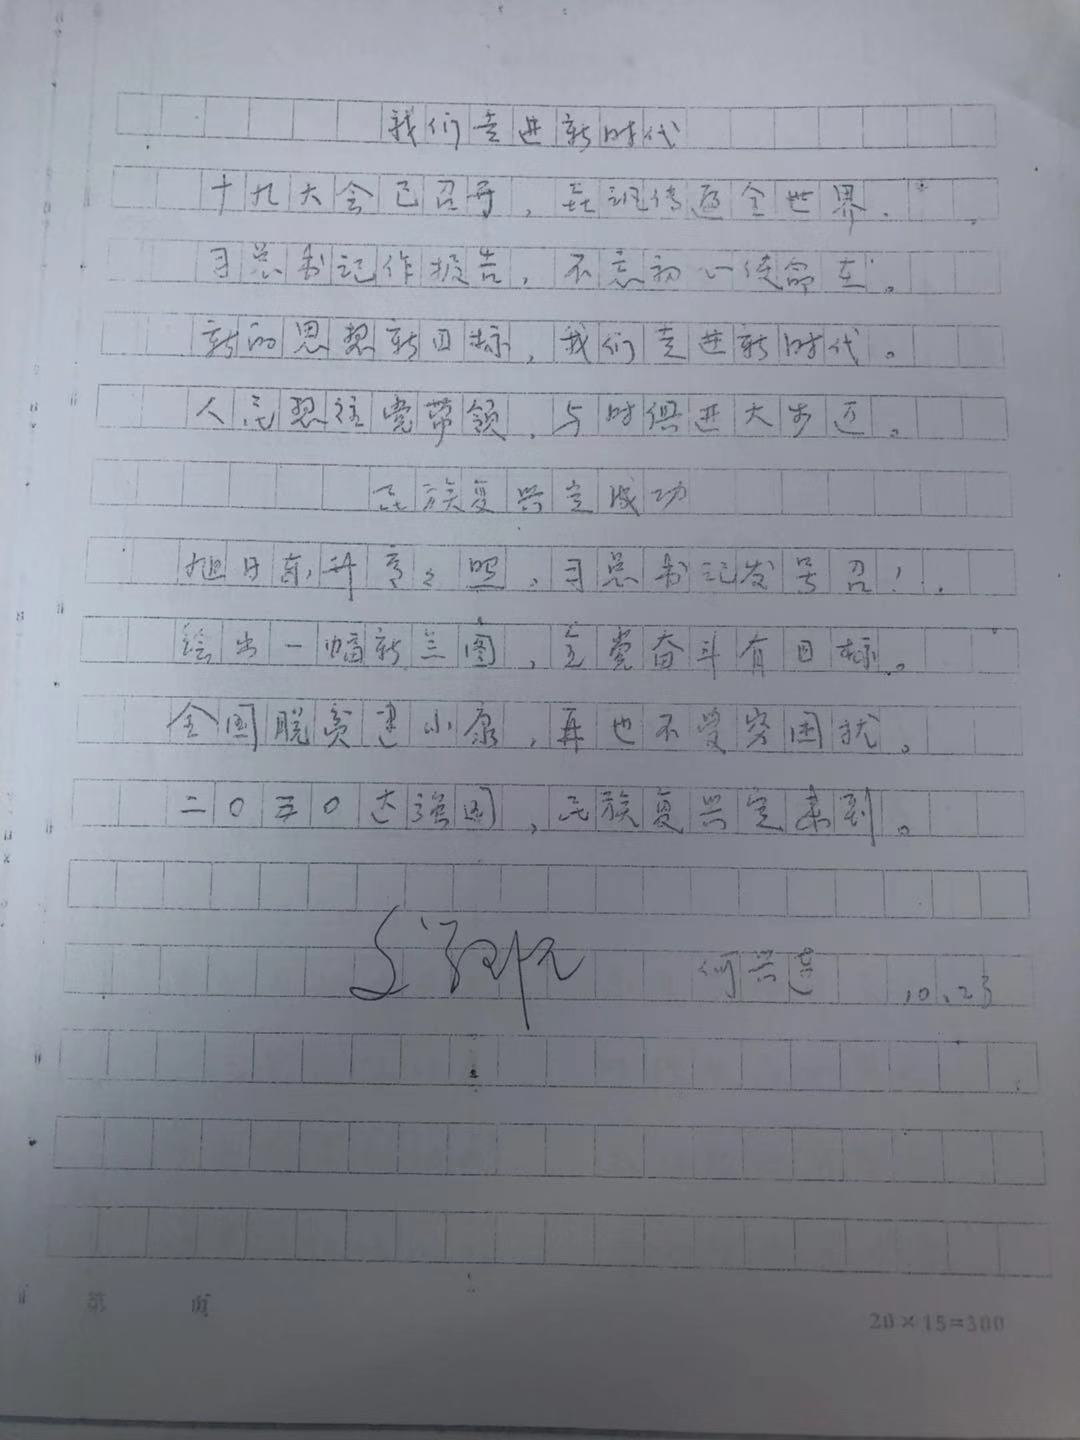 我们走进新时代
十九大会已召开，喜讯传遍全世界.
习总书记作报告，不忘初心使命在。
新的思想新目标，我们走进新时代。
人民想往党带领，与时俱进大步迈。
民族复兴定成功
旭日东升高高照，习总书记发号召！.
绘出一幅新兰图，全党奋斗有目标。
全国脱贫建小康，再也不受穷困扰。
二〇五〇达强国，民族复兴定来到。
10.23
第 页
20×15=300